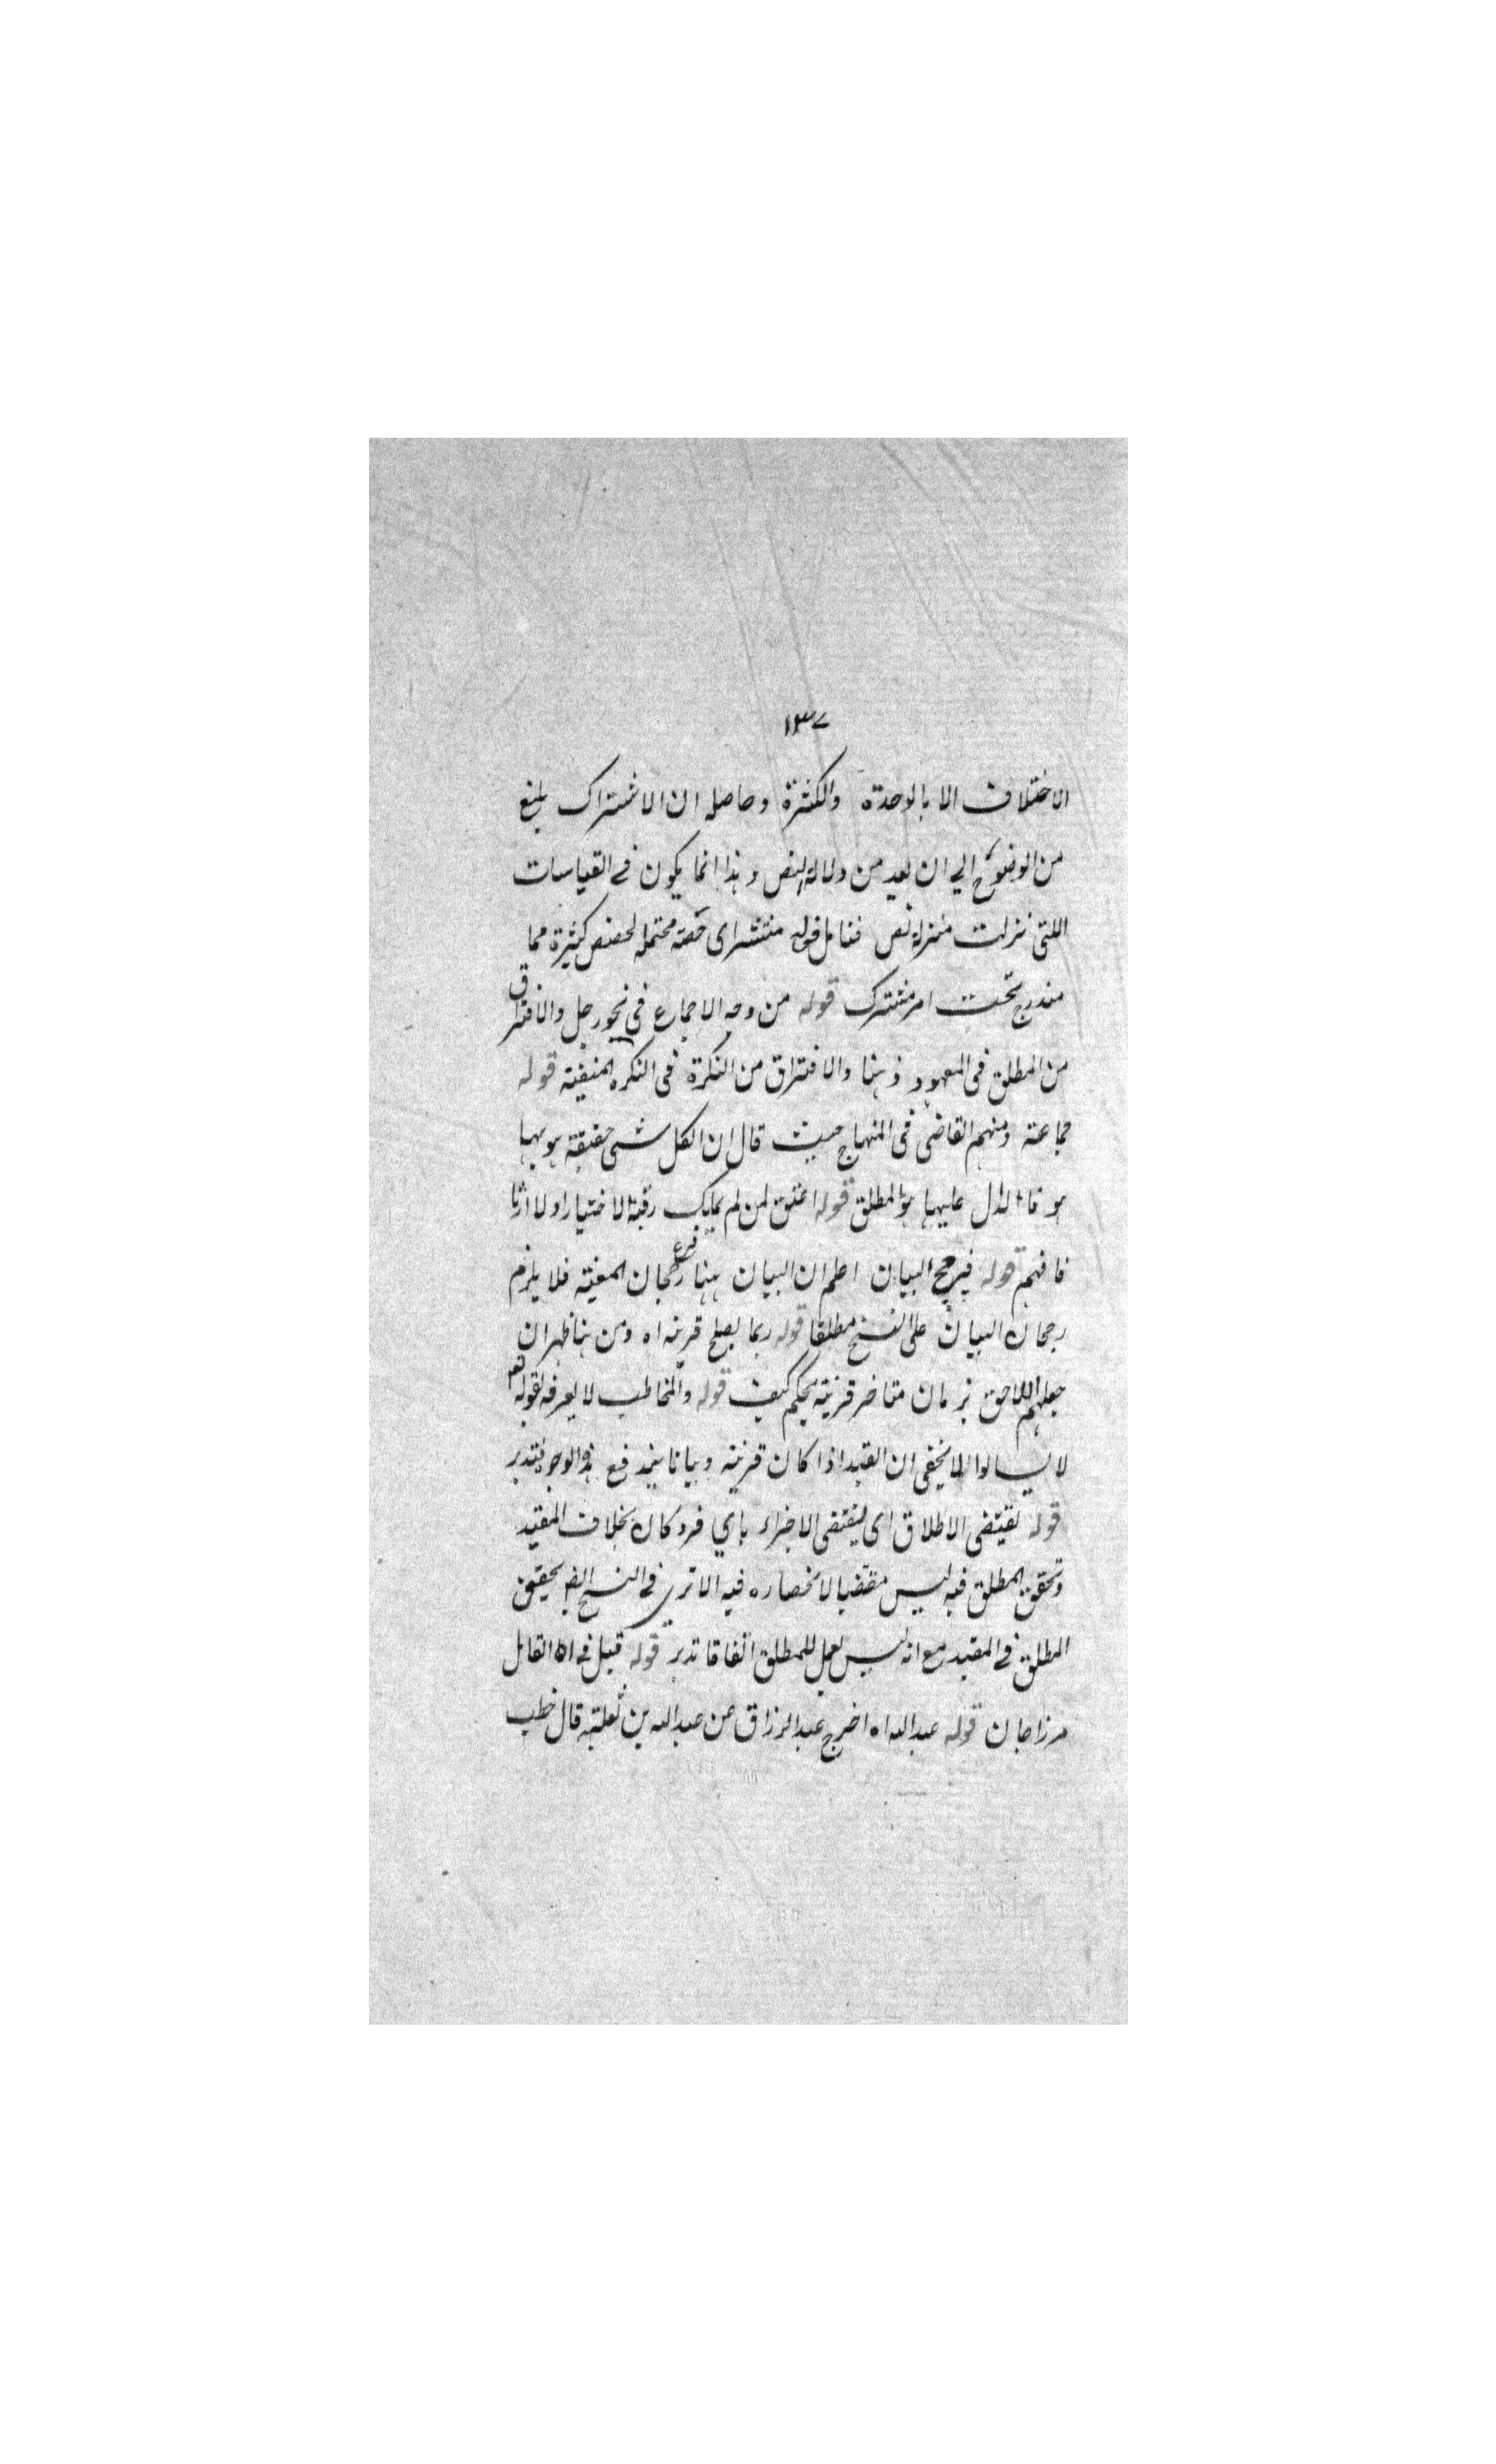 ١٣٧
الاختلاف الا بالوحدة والكثرة وحاصله ان الاشتراك بلغ
من الوضوح الي ان يعد من دلالة النص وهذا انما يكون في القياسات
اللتى نزلت منزلة نص فتامل قوله منتشر اى حصة محتملة لحصص كثيرة مما
مندرج تحت امر مشترك قوله من وجه الاجماع في نحو رجل والافتراق
من المطلق فى المعهود ذهنا والافتراق من النكرة فى النكرة المنفية قوله
جماعة ومنهم القاضى فى المنهاج حيث قال ان لكل شى حقيقة هو بها
هو فالدال عليها هو المطلق قوله اعتق لمن لم يملك رقبة لا اختيارا ولا ارثا
فافهم قوله فيرجح البيان اعلم ان البيان ههنا فرع رجحان المعية فلا يلزم
رجحان البيان على النسخ مطلقا قوله ربما يصلح قرينة اه ومن هنا ظهر ان
جعلهم اللاحق بزمان متاخر قرينة تحكم كيف قوله والمخاطب لا يعرفه لقوله تعم
لا يسالوا لا يخفى ان القيد اذا كان قرينة وبيانا يندفع هذه الوجوه فتدبر
قوله تقيتضى الاطلاق اى ليقتضى الاجزاء باي فرد كان بخلاف المقيد
وتحقق المطلق فيه ليس مقتضيا لانحصاره فيه الا ترى في النسخ ايض يتحقق
المطلق في المقيد مع انه ليس بعمل للمطلق اتفاقا تدبر قوله قيل في اه القائل
مرزاجان قوله عبد الله اه اخرج عبد الرزاق عن عبد الله بن ثعلبة قال خطب